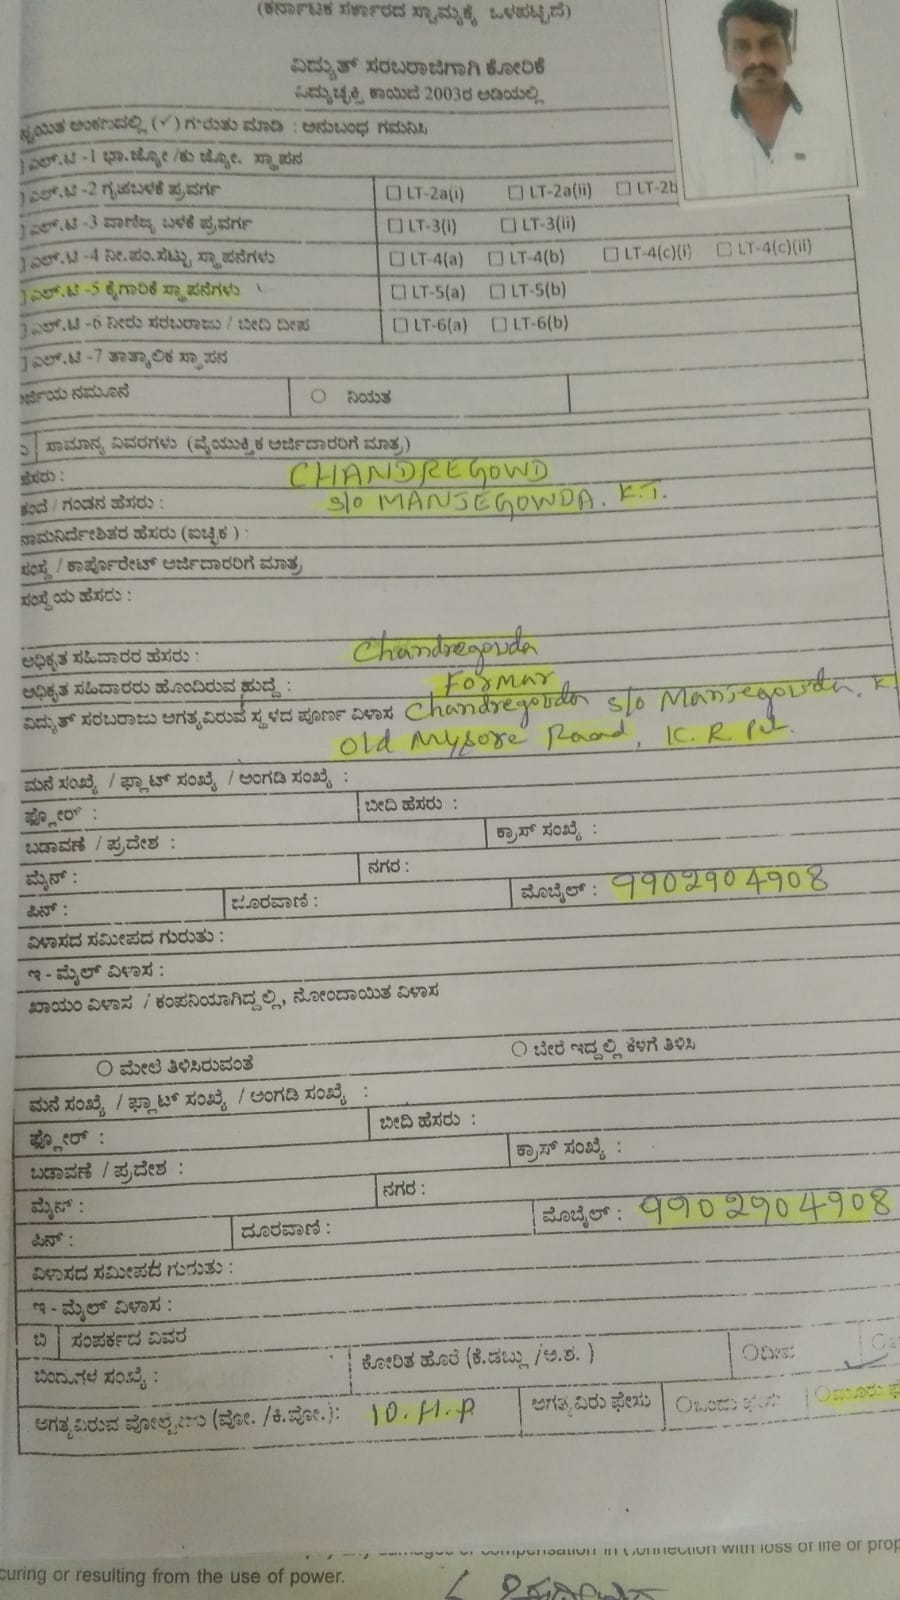 (ಕರ್ನಾಟಕ ಸರ್ಕಾರದ ಸ್ವಾಮ್ಯಕ್ಕೆ ಒಳಪಟ್ಟಿದೆ)
ವಿದ್ಯುತ್ ಸರಬರಾಜಿಗಾಗಿ ಕೋರಿಕೆ
ವಿದ್ಯುಚ್ಛಕ್ತಿ ಕಾಯಿದೆ 2003ರ ಅಡಿಯಲ್ಲಿ
ಅಂಕಣದಲ್ಲಿ (✓) ಗುರುತು ಮಾಡಿ : ಅನುಬಂಧ ಗಮನಿಸಿ
ಎಲ್.ಟಿ -1 ಭಾ.ಜ್ಯೋ /ಕು ಜ್ಯೋ. ಸ್ಥಾಪನ
ಎಲ್.ಟಿ -2 ಗೃಹಬಳಕೆ ಪ್ರವರ್ಗ ☐ LT-2a(i) ☐ LT-2a(ii) ☐ LT-2b
ಎಲ್.ಟಿ -3 ವಾಣಿಜ್ಯ ಬಳಕೆ ಪ್ರವರ್ಗ ☐ LT-3(i) ☐ LT-3(ii)
ಎಲ್.ಟಿ -4 ನೀ.ಪಂ.ಸೆಟ್ಟು ಸ್ಥಾಪನೆಗಳು ☐ LT-4(a) ☐ LT-4(b) ☐ LT-4(c)(i) ☐ LT-4(c)(ii)
ಎಲ್.ಟಿ -5 ಕೈಗಾರಿಕೆ ಸ್ಥಾಪನೆಗಳು ☐ LT-5(a) ☐ LT-5(b)
ಎಲ್.ಟಿ -6 ನೀರು ಸರಬರಾಜು / ಬೀದಿ ದೀಪ ☐ LT-6(a) ☐ LT-6(b)
ಎಲ್.ಟಿ -7 ತಾತ್ಕಾಲಿಕ ಸ್ಥಾಪನ
ರ್ಜಿಯ ನಮೂನೆ ○ ನಿಯತ
ಸಾಮಾನ್ಯ ವಿವರಗಳು (ವೈಯುಕ್ತಿಕ ಅರ್ಜಿದಾರರಿಗೆ ಮಾತ್ರ)
ಹೆಸರು : CHANDREGOWD
ತಂದೆ / ಗಂಡನ ಹೆಸರು : S/o MANJEGOWDA. K.T.
ನಾಮನಿರ್ದೇಶಿತರ ಹೆಸರು (ಐಚ್ಛಿಕ) :
ಸಂಸ್ಥೆ / ಕಾರ್ಪೊರೇಟ್ ಅರ್ಜಿದಾರರಿಗೆ ಮಾತ್ರ
ಸಂಸ್ಥೆಯ ಹೆಸರು :
ಅಧಿಕೃತ ಸಹಿದಾರರ ಹೆಸರು : Chandregowda
ಅಧಿಕೃತ ಸಹಿದಾರರು ಹೊಂದಿರುವ ಹುದ್ದೆ : Formar
ವಿದ್ಯುತ್ ಸರಬರಾಜು ಅಗತ್ಯವಿರುವ ಸ್ಥಳದ ಪೂರ್ಣ ವಿಳಾಸ Chandregowda S/o Manjegowda. K
Old Mysore Raad, K.R. Pet.
ಮನೆ ಸಂಖ್ಯೆ / ಫ್ಲಾಟ್ ಸಂಖ್ಯೆ / ಅಂಗಡಿ ಸಂಖ್ಯೆ :
ಫ್ಲೋರ್ : ಬೀದಿ ಹೆಸರು :
ಬಡಾವಣೆ / ಪ್ರದೇಶ : ಕ್ರಾಸ್ ಸಂಖ್ಯೆ :
ಮೈನ್ : ನಗರ :
ಪಿನ್ : ದೂರವಾಣಿ : ಮೊಬೈಲ್ : 9902904908
ವಿಳಾಸದ ಸಮೀಪದ ಗುರುತು :
ಇ - ಮೈಲ್ ವಿಳಾಸ :
ಖಾಯಂ ವಿಳಾಸ / ಕಂಪನಿಯಾಗಿದ್ದಲ್ಲಿ, ನೋಂದಾಯಿತ ವಿಳಾಸ
○ ಮೇಲೆ ತಿಳಿಸಿರುವಂತೆ ○ ಬೇರೆ ಇದ್ದಲ್ಲಿ ಕೆಳಗೆ ತಿಳಿಸಿ
ಮನೆ ಸಂಖ್ಯೆ / ಫ್ಲಾಟ್ ಸಂಖ್ಯೆ / ಅಂಗಡಿ ಸಂಖ್ಯೆ :
ಫ್ಲೋರ್ : ಬೀದಿ ಹೆಸರು :
ಬಡಾವಣೆ / ಪ್ರದೇಶ : ಕ್ರಾಸ್ ಸಂಖ್ಯೆ :
ಮೈನ್ : ನಗರ :
ಪಿನ್ : ದೂರವಾಣಿ : ಮೊಬೈಲ್ : 9902904908
ವಿಳಾಸದ ಸಮೀಪದ ಗುರುತು :
ಇ - ಮೈಲ್ ವಿಳಾಸ :
ಬಿ ಸಂಪರ್ಕದ ವಿವರ
ಬಿಂದುಗಳ ಸಂಖ್ಯೆ : ಕೋರಿತ ಹೊರೆ (ಕೆ.ಡಬ್ಲು /ಅ.ಶ. ) ○ದೀಪ
ಅಗತ್ಯವಿರುವ ವೋಲ್ಟೇಜು (ವೋ. /ಕಿ.ವೋ.): 10.H.P ಅಗತ್ಯವಿರು ಫೇಸು ○ಒಂದು ○ಮೂರು
compensation in connection with loss of life or prop
curing or resulting from the use of power.